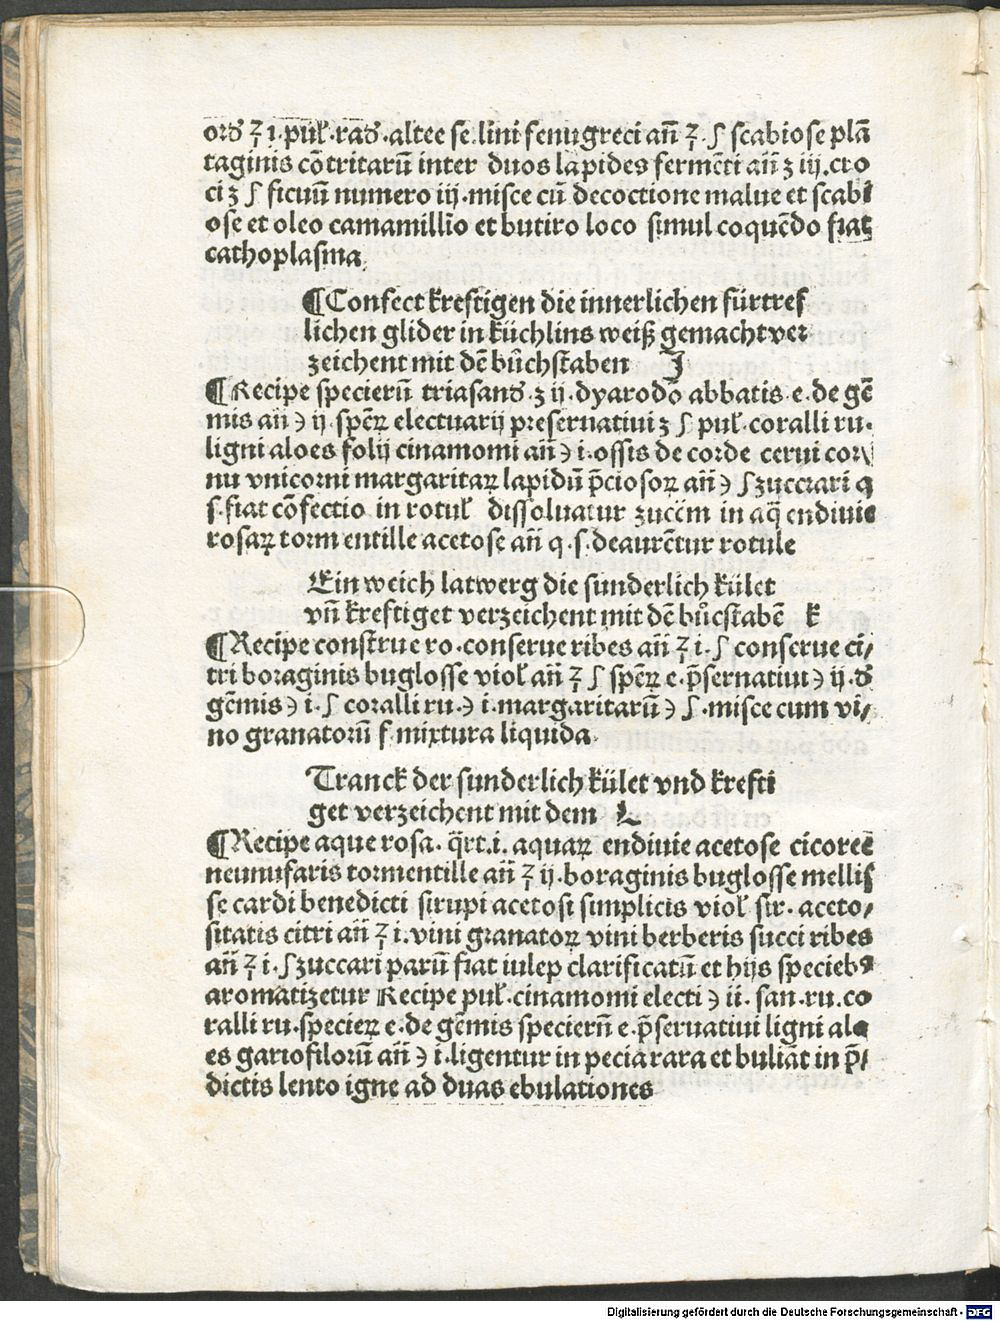 orꝺ ℥ı·pul̄·raꝺ·altee se.lini fenugreci an̄ ℥·ſ scabiose plā
taginis cōtritarū inter duos lapides fermēti an̄ ʒ iij.cro
ci ʒ ſ ficuū numero iij·misce cū decoctione malue et scabi
ose et oleo camamillīo et butiro loco simul coquēdo fiat
cathoplasma.
¶Confect kreftigen die innerlichen fürtref
lichen glider in küchlins weiß gemacht ver
zeichent mit dē bůchstaben J
¶Recipe specierū triasanꝺ·ʒ ij·dyarodō abbatis·e·de gē
mis an̄ ℈ ij·spēꝝ electuarij preseruatiui ʒ ſ pul̄·coralli ru·
ligni aloes folij cinamomi an̄ ℈ i·ossis de corde cerui cor
nu vnicorni margaritaꝝ lapidū p̄ciosoꝝ an̄ ℈ ſ zuccari q
s·fiat cōfectio in rotul̄ dissoluatur zucēm in aq̄ endiuie
rosaꝝ tormentille acetose an̄ q·s·deaurētur rotule
Ein weich latwerg die sunderlich kület
vn̄ kreftiget verzeichent mit dē bůcstabē k
¶Recipe construe ro·conserue ribes an̄ ℥ i·ſ conserue ci/
tri boraginis buglosse viol̄ an̄ ℥ ſ spēꝝ e·p̄sernatiui ℈ ij·ꝺ
gēmis ℈ i·ſ coralli ru·℈ i·margaritarū ℈ ſ·misce cum vi/
no granatorū f·mixtura liquida·
Tranck der sunderlich kület vnd krefti
get verzeichent mit dem L
¶Recipe aque rosa·q̄rt.i.aquaꝝ endiuie acetose cicoree
neunufaris tormentille an̄ ℥ ij·boraginis buglosse mellis
se cardi benedicti sirupi acetosi simplicis viol̄ sir·aceto/
sitatis citri an̄ ℥ i·vini granatoꝝ vini berberis succi ribes
an̄ ℥ i·ſ zuccari parū fiat iulep clarificatū et hijs specieb⁹
aromatizetur Recipe pul̄·cinamomi electi ℈ ii·san·ru.co
ralli ru·specieꝝ e·de gēmis speciern̄ e·p̄seruatiui ligni alo
es gariofilorū an̄ ℈ i·ligentur in pecia rara et buliāt in p̄/
dictis lento igne ad duas ebulationes
Digitalisierung gefördert durch die Deutsche Forschungsgemeinschaft - DFG